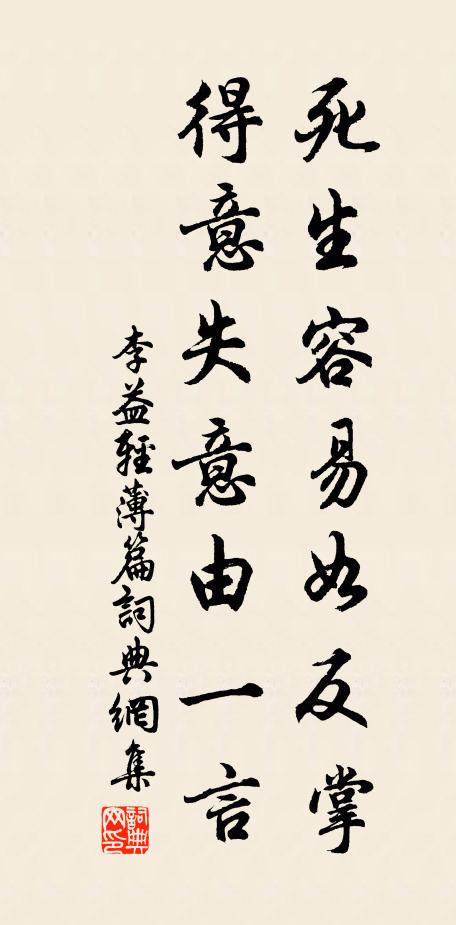 死生容易如反掌
得意失意由一言
李益輕薄篇詞典網集
詞典
网印